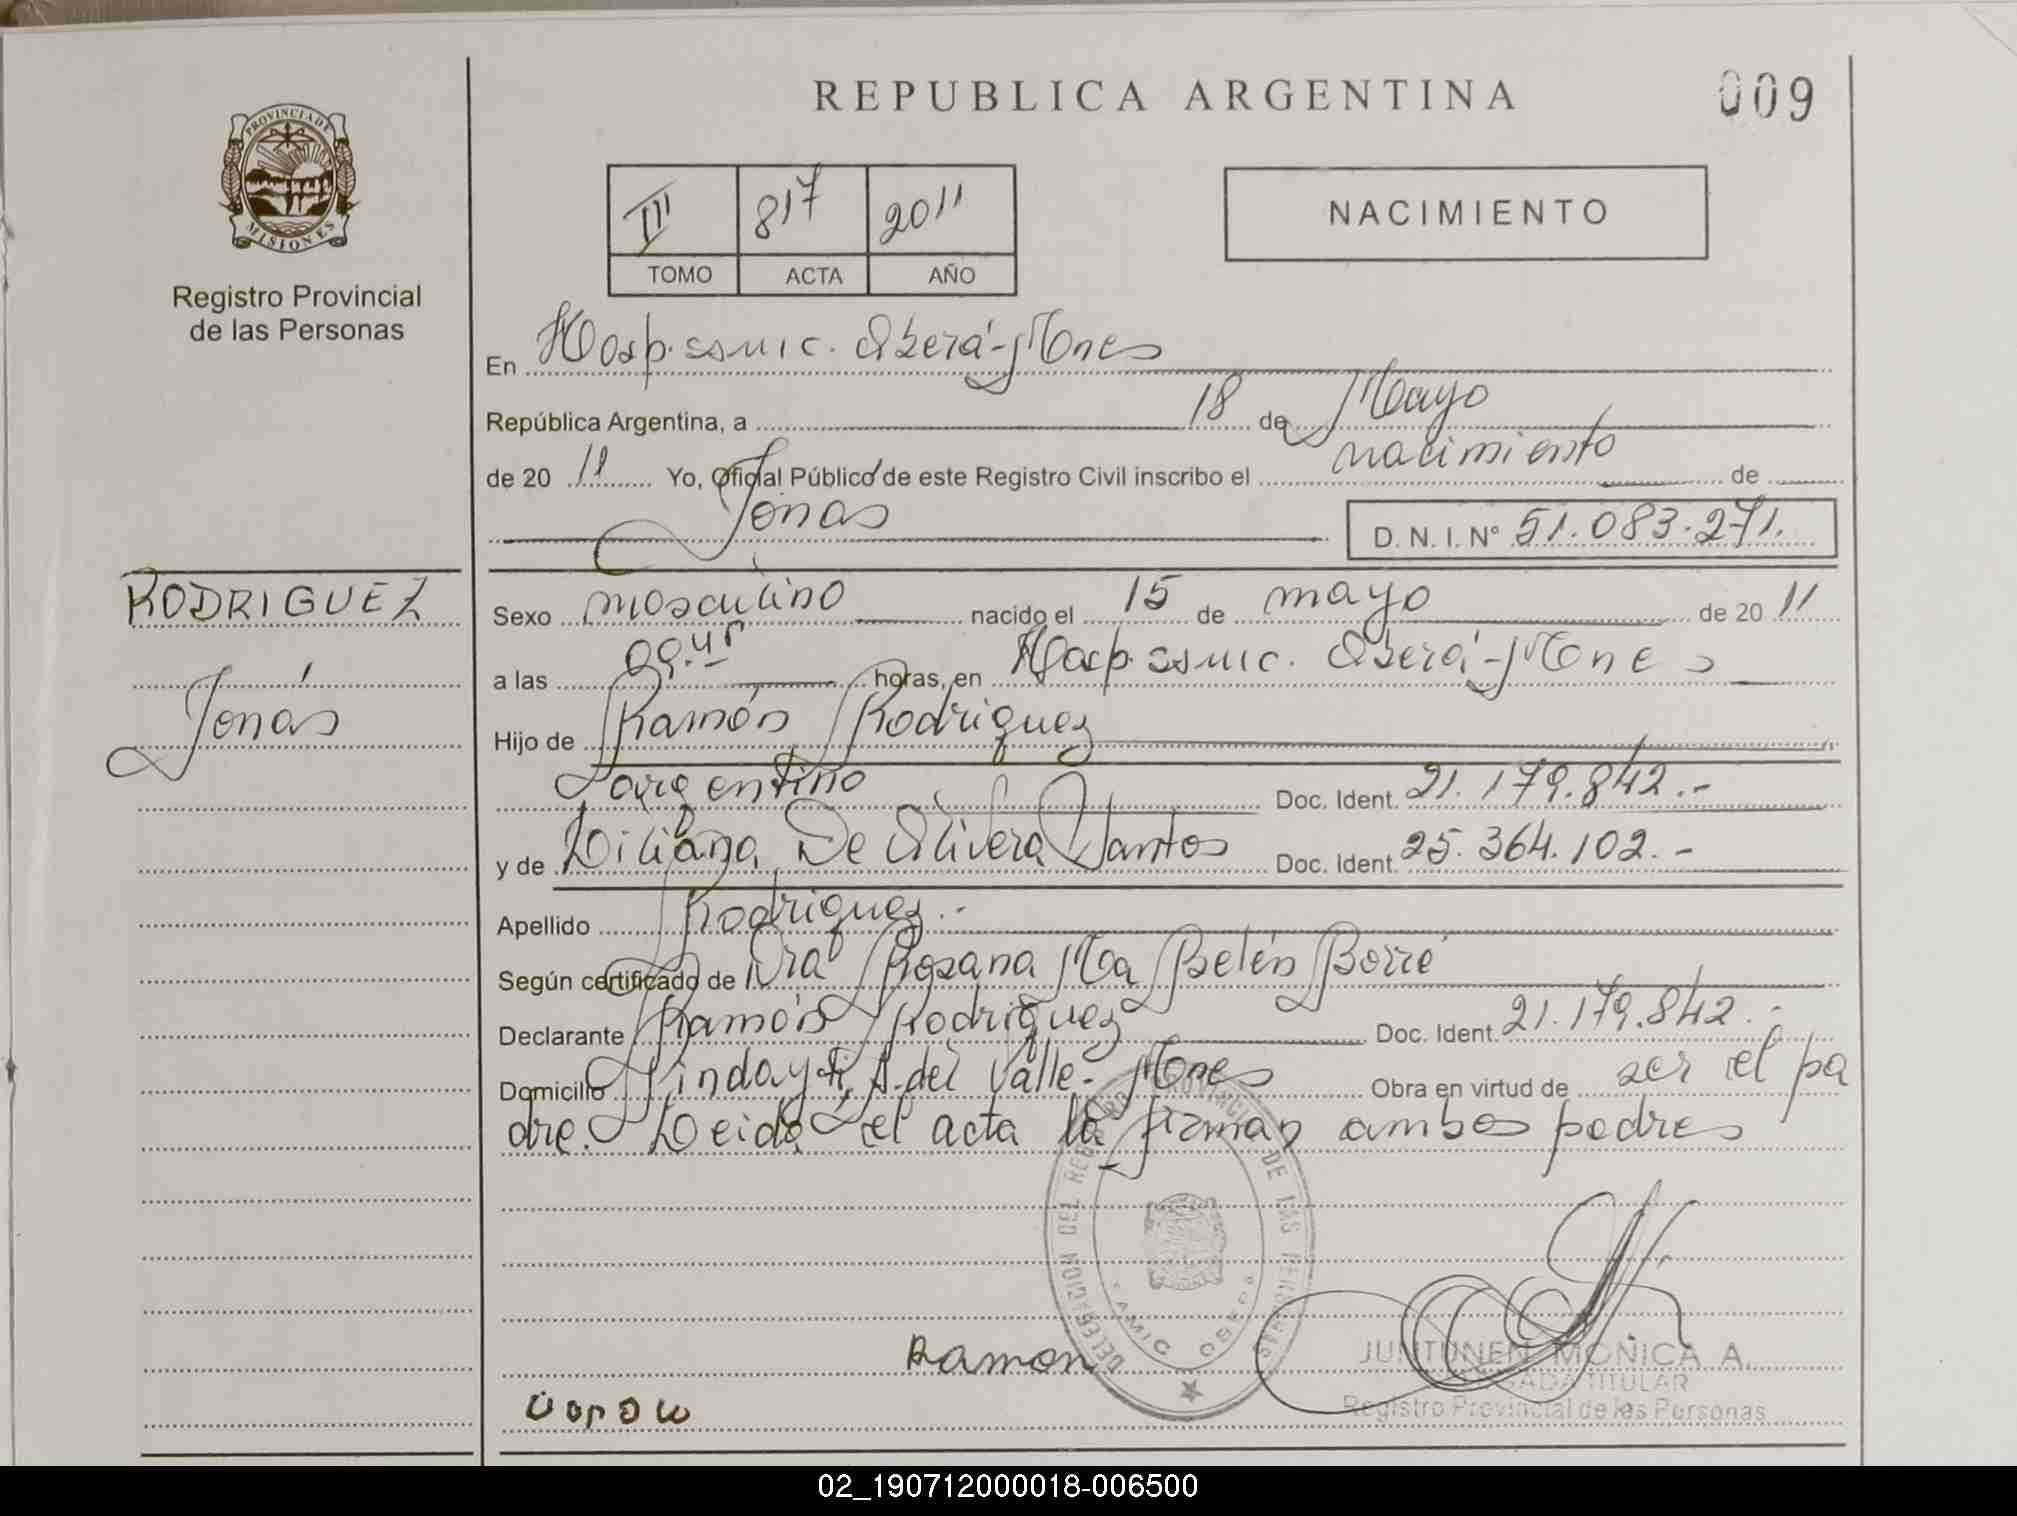 REPUBLICA ARGENTINA
009
PROVINCIA DE
MISIONES
Registro Provincial
de las Personas
III 817 2011
TOMO ACTA AÑO
NACIMIENTO
En Hosp. SAMIC. Oberá-Mnes
República Argentina, a 18 de Mayo
de 20 11 Yo, Oficial Público de este Registro Civil inscribo el nacimiento de
Jonás
D. N. I. Nº 51.083.271.
RODRIGUEZ
Jonás
Sexo masculino nacido el 15 de mayo de 20 11
a las horas, en Hosp. SAMIC. Oberá-Mnes
Hijo de Ramón Rodriguez
argentino Doc. Ident. 21.179.842.-
y de Liliana De Olivera Santos Doc. Ident. 25.364.102.-
Apellido Rodriguez.-
Según certificado de Dra Rosana Ma Belén Borré
Declarante Ramón Rodriguez Doc. Ident. 21.179.842.-
Domicilio A. del Valle- Mnes Obra en virtud de ser el pa
dre. Leida el acta la firman ambos padres
DELEGACION DEL REGISTRO PROVINCIAL DE LAS PERSONAS
SAMIC OBERA
Ramon
JUNTUNEN MONICA A.
DELEGADA TITULAR
Registro Provincial de las Personas
02_190712000018-006500